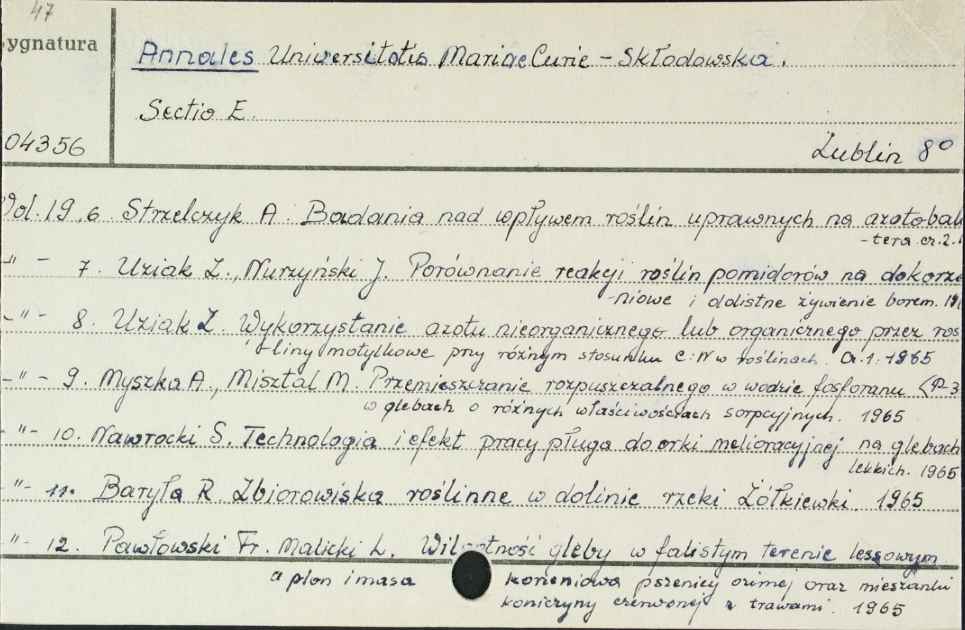 47
ygnatura
Annales Universitatis Mariae Curie - Skłodowska.
Sectio E.
04356
Lublin 8°
Vol. 19. 6. Strzelczyk A. Badania nad wpływem roślin uprawnych na azotobak
-tera cz. 2.
-"- 7. Uziak Z., Nurzyński J. Porównanie reakcji roślin pomidorów na dokorze
-niowe i dolistne żywienie borem. 19
-"- 8. Uziak Z. Wykorzystanie azotu nieorganicznego lub organicznego przez roś
-liny motylkowe przy różnym stosunku C:N w roślinach. Cz. 1. 1965
-"- 9. Myszka A., Misztal M. Przemieszczanie rozpuszczalnego w wodzie fosforanu (P-3
w glebach o różnych właściwościach sorpcyjnych. 1965
-"- 10. Nawrocki S. Technologia i efekt pracy pługa do orki melioracyjnej na glebach
lekkich. 1965
-"- 11. Baryła R. Zbiorowiska roślinne w dolinie rzeki Żółkiewki. 1965
-"- 12. Pawłowski Fr. Malicki L. Wilgotność gleby w falistym terenie lessowym
a plon i masa korzeniowa pszenicy ozimej oraz mieszanki
koniczyny czerwonej z trawami. 1965